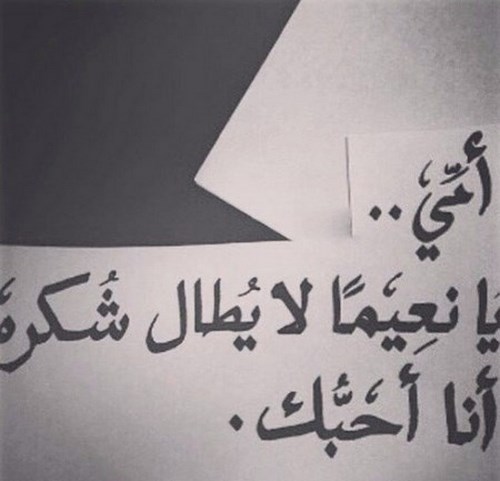 أمّي ..
يا نعِيمًا لا يُطال شُكره
أنا أحَبُّك .